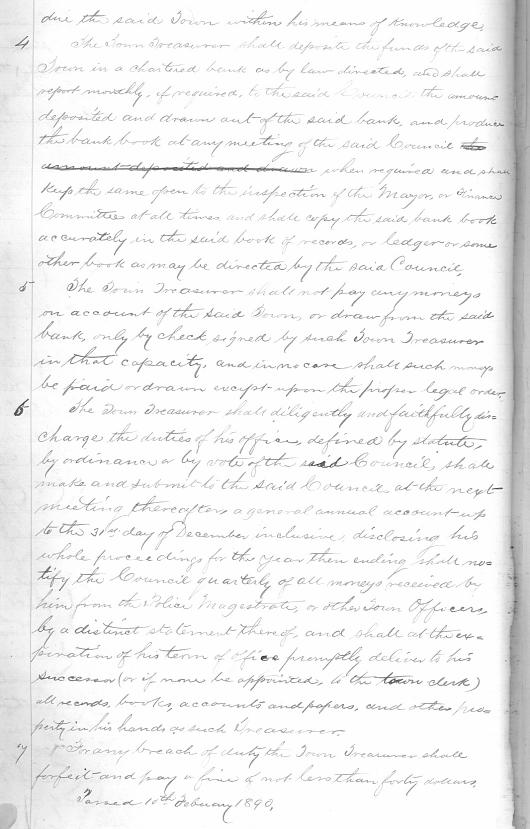 due the said Town within his means of Knowledge.
4 The Town Treasurer shall deposite the funds of the said
Town in a chartered bank as by law directed, and shall
report monthly, if required, to the said Council the amount
deposited and drawn out of the said bank, and produce
the bank book at any meeting of the said Council the
amount deposited and drawn when required and shall
Keep the same open to the inspection of the Mayor, or Finance
Committee at all times and shall copy the said bank book
accurately in the said book of records, or ledger or some
other book as may be directed by the said Council.
5 The Town Treasurer shall not pay any moneys
on account of the said Town, or draw from the said
bank, only by check signed by such Town Treasurer
in that capacity, and in no case shall such moneys
be paid or drawn except upon the proper legal order.
6 The Town Treasurer shall diligently and faithfully dis=
charge the duties of his office, defined by statute,
by ordinance or by vote of the said Council, shall
make and submit to the said Council at the next
meeting thereafter a general annual account up
to the 31st day of December inclusive, disclosing his
whole proceedings for the year then ending shall no=
tify the Council quarterly of all moneys received by
him from the Police Magestrate, or other Town Officers,
by a distinct statement thereof, and shall at the ex=
piration of his term of office promptly deliver to his
successor (or if none be appointed, to the town clerk)
all records, books, accounts and papers, and other pro=
perty in his hands as such Treasurer.
7 For any breach of duty the Town Treasurer shall
forfeit and pay a fine of not less than forty dollars.
Passed 10th Febuary 1890.